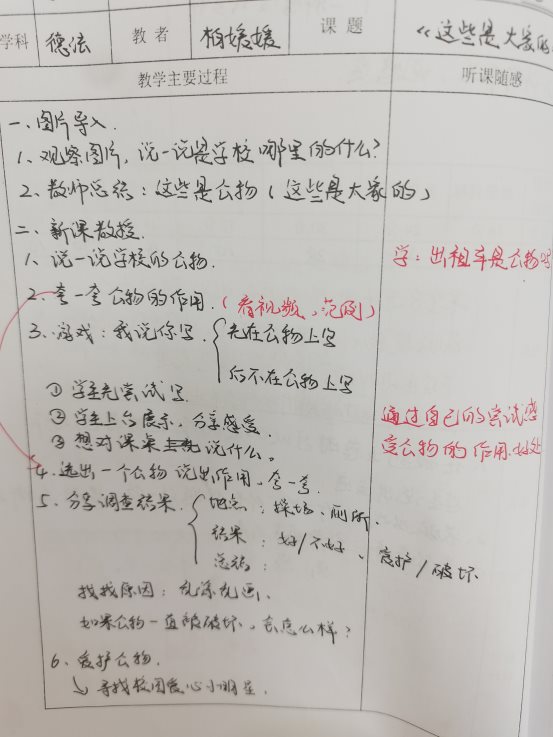 学科 德法 教者 柏媛媛 课题 《这些是大家的
教学主要过程 听课随感
一、图片导入.
1、观察图片，说一说是学校哪里的什么？
2、教师总结：这些是公物（这些是大家的）
二、新课教授.
1、说一说学校的公物.
学：出租车是公物吗
2、夸一夸公物的作用.（看视频、范例）
3、游戏：我说你写. { 先在公物上写
后不在公物上写
①学生先尝试写
②学生上台展示，分享感受.
通过自己的尝试感
③想对课桌说什么。
受公物的作用.好处
4、选出一个公物说出作用，夸一夸.
5、分享调查结果. { 地点：操场、厕所.
结果：好/不好、爱护/破坏
总结：
找找原因：乱涂乱画.
如果公物一直被破坏，会怎么样？
6、爱护公物.
↘寻找校园爱心小明星.